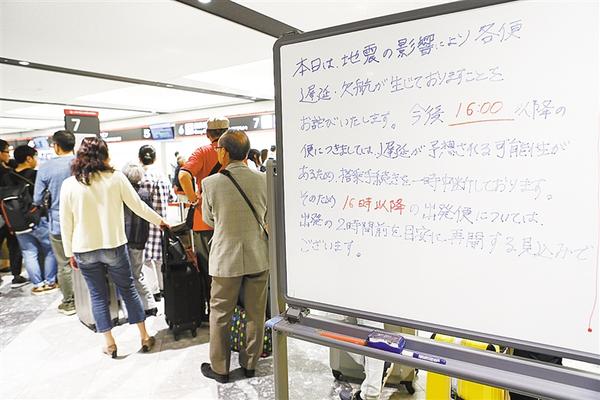 本日は、地震の影響により各便
遅延・欠航が生じておりますことを
お詫びいたします。今後 16:00 以降の
便につきましては、遅延が予想される可能性が
あるため 搭乗手続きを一時中断しております。
そのため 16時以降の出発便については、
出発の2時間前を目安に再開する見込みで
ございます。
7
5